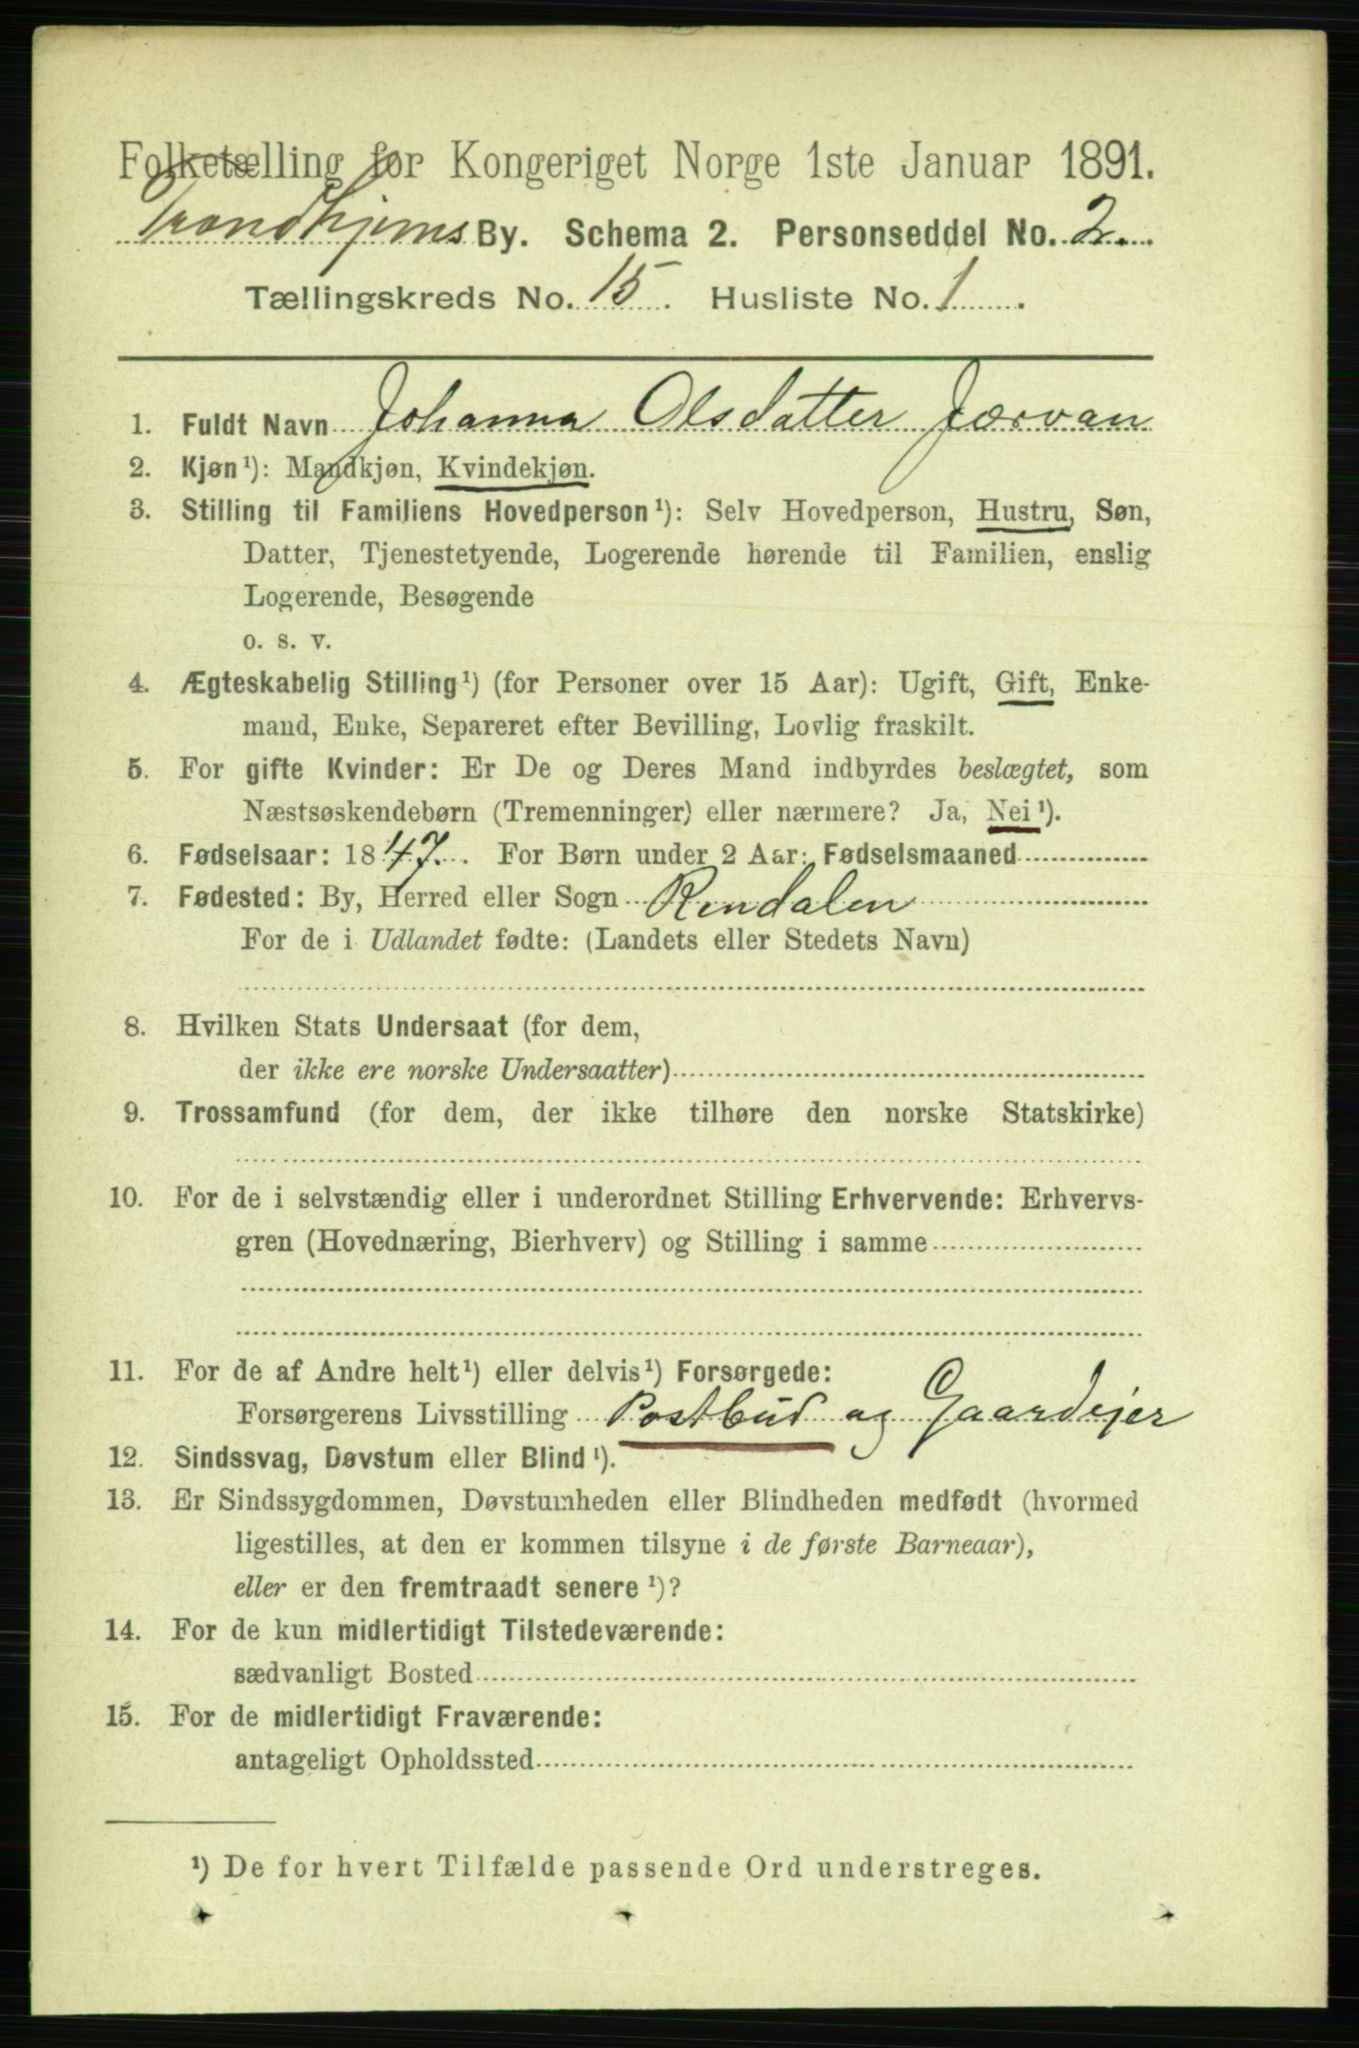 Folketælling for Kongeriget Norge 1ste Januar 1891.
Trondhjems By. Schema 2. Personseddel No. 2.
Tællingskreds No. 15. Husliste No. 1.
1. Fuldt Navn Johanna Olsdatter Jærvan
2. Kjøn¹): Mandkjøn, Kvindekjøn.
3. Stilling til Familiens Hovedperson¹): Selv Hovedperson, Hustru, Søn,
Datter, Tjenestetyende, Logerende hørende til Familien, enslig
Logerende, Besøgende
o. s. v.
4. Ægteskabelig Stilling¹) (for Personer over 15 Aar): Ugift, Gift, Enke-
mand, Enke, Separeret efter Bevilling, Lovlig fraskilt.
5. For gifte Kvinder: Er De og Deres Mand indbyrdes beslægtet, som
Næstsøskendebørn (Tremenninger) eller nærmere? Ja, Nei¹).
6. Fødselsaar: 1847. For Børn under 2 Aar: Fødselsmaaned
7. Fødested: By, Herred eller Sogn Rendalen
For de i Udlandet fødte: (Landets eller Stedets Navn)
8. Hvilken Stats Undersaat (for dem,
der ikke ere norske Undersaatter)
9. Trossamfund (for dem, der ikke tilhøre den norske Statskirke)
10. For de i selvstændig eller i underordnet Stilling Erhvervende: Erhvervs-
gren (Hovednæring, Bierhverv) og Stilling i samme
11. For de af Andre helt¹) eller delvis¹) Forsørgede:
Forsørgerens Livsstilling Postbud og Gaardejer
12. Sindssvag, Døvstum eller Blind¹).
13. Er Sindssygdommen, Døvstumheden eller Blindheden medfødt (hvormed
ligestilles, at den er kommen tilsyne i de første Barneaar),
eller er den fremtraadt senere¹)?
14. For de kun midlertidigt Tilstedeværende:
sædvanligt Bosted
15. For de midlertidigt Fraværende:
antageligt Opholdssted
¹) De for hvert Tilfælde passende Ord understreges.